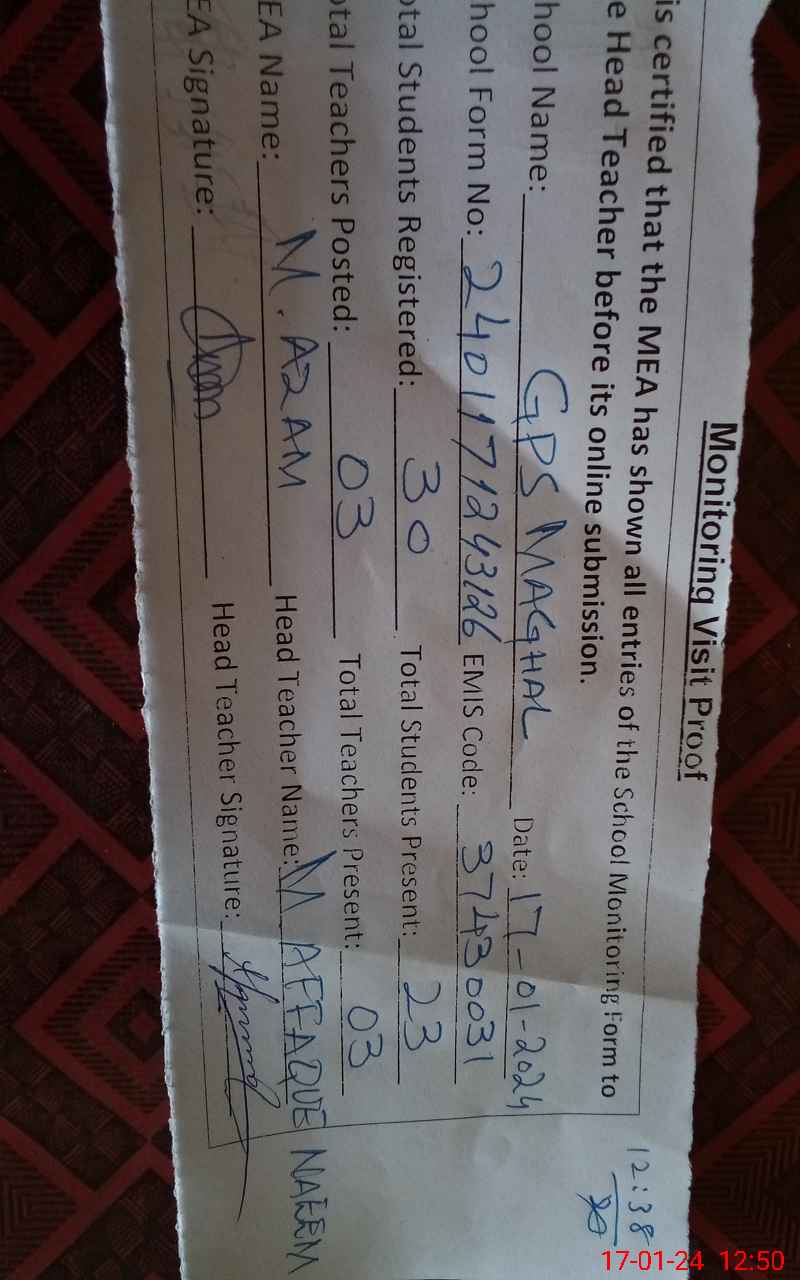 Monitoring Visit Proof
is certified that the MEA has shown all entries of the School Monitoring Form to
e Head Teacher before its online submission.
12:38
hool Name: GPS MAGHAL Date: 17-01-2024
hool Form No: 2401171243126 EMIS Code: 37430031
otal Students Registered: 30 Total Students Present: 23
otal Teachers Posted: 03 Total Teachers Present: 03
EA Name: M. AZAM Head Teacher Name: M AFFAQUE NAEEM
EA Signature: Head Teacher Signature:
17-01-24 12:50